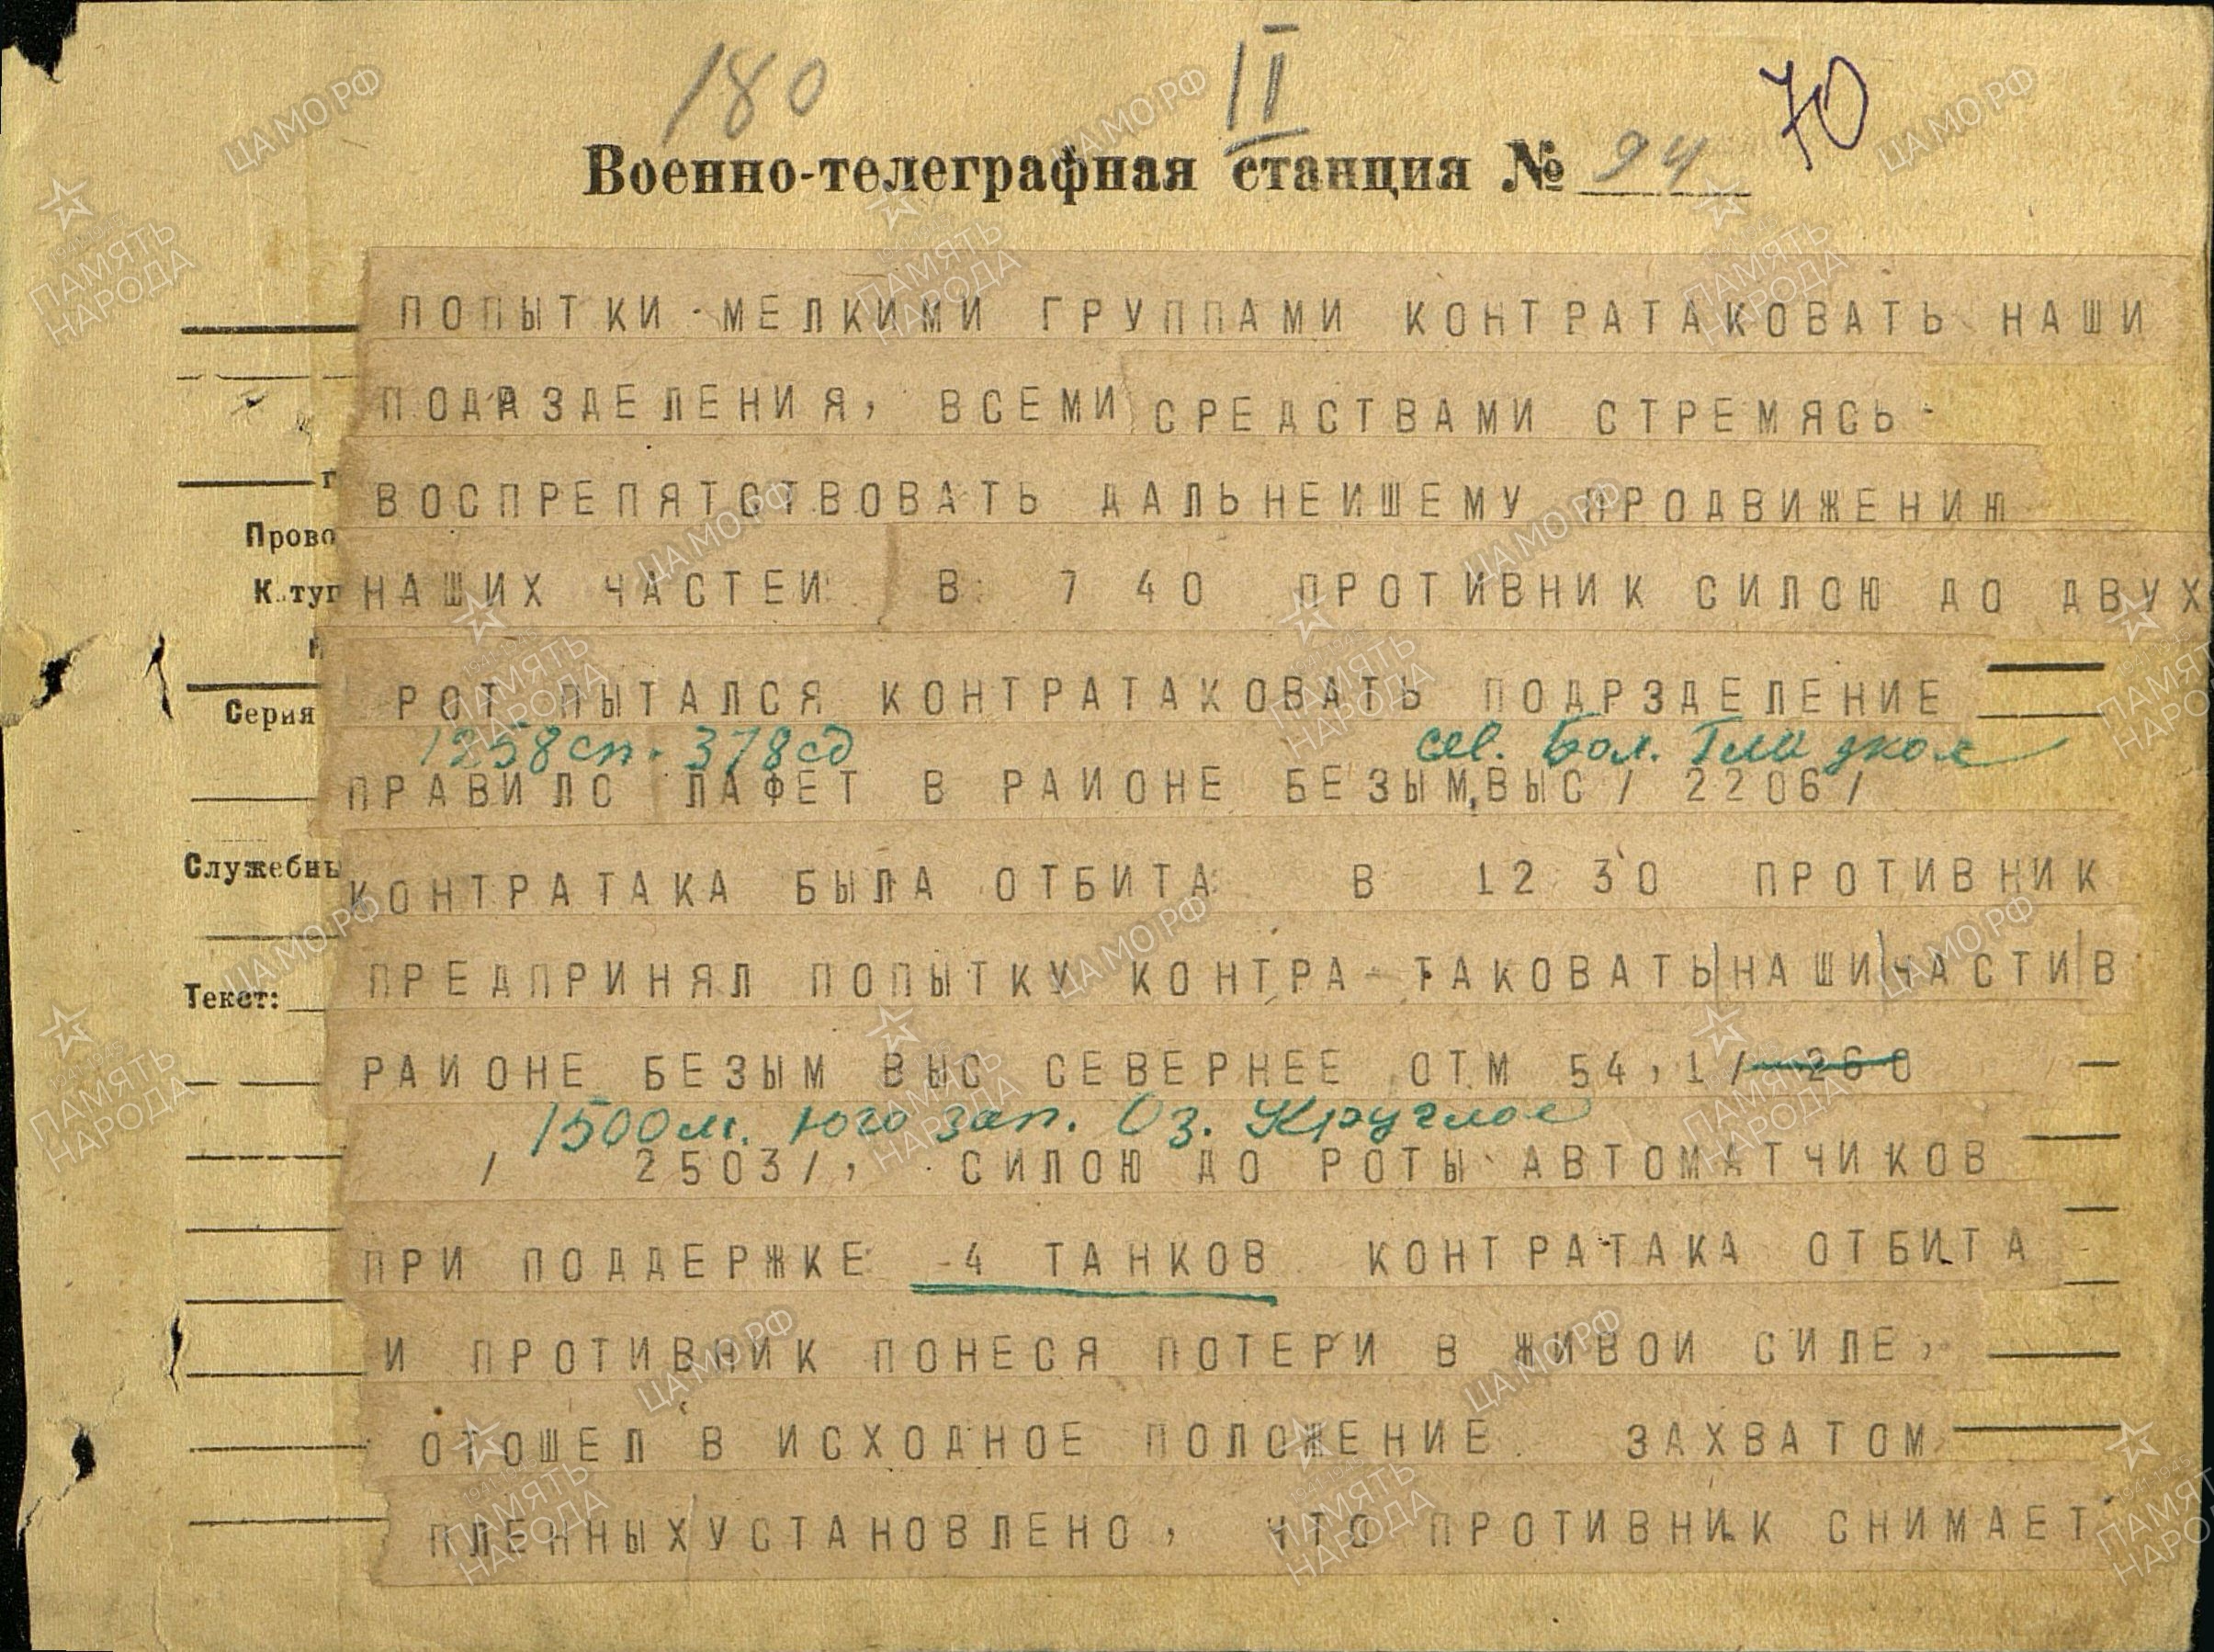 180 II 70
Военно-телеграфная станция № 94
ПОПЫТКИ МЕЛКИМИ ГРУППАМИ КОНТРАТАКОВАТЬ НАШИ
ПОДРЗДЕЛЕНИЯ, ВСЕМИ СРЕДСТВАМИ СТРЕМЯСЬ
ВОСПРЕПЯТСТВОВАТЬ ДАЛЬНЕИШЕМУ ПРОДВИЖЕНИЮ
Прово
НАШИХ ЧАСТЕИ В 7 40 ПРОТИВНИК СИЛОЮ ДО ДВУХ
К туп
РОТ ПЫТАЛСЯ КОНТРАТАКОВАТЬ ПОДРЗДЕЛЕНИЕ
Серия
1258 сп. 378 сд сев. Бол.
ПРАВИЛО ЛАФЕТ В РАИОНЕ БЕЗЫМ,ВЫС / 2206/
Служебны
КОНТРАТАКА БЫЛА ОТБИТА В 12 30 ПРОТИВНИК
ПРЕДПРИНЯЛ ПОПЫТКУ КОНТРА-ТАКОВАТЬ НАШИ ЧАСТИ В
Текст:
РАИОНЕ БЕЗЫМ ВЫС СЕВЕРНЕЕ ОТМ 54,1/ 260
1500 м. юго зап. Оз. Круглое
/ 2503/, СИЛОЮ ДО РОТЫ АВТОМАТЧИКОВ
ПРИ ПОДДЕРЖКЕ -4 ТАНКОВ КОНТРАТАКА ОТБИТА
И ПРОТИВНИК ПОНЕСЯ ПОТЕРИ В ЖИВОИ СИЛЕ,
ОТОШЕЛ В ИСХОДНОЕ ПОЛОЖЕНИЕ. ЗАХВАТОМ
ПЛЕННЫХ УСТАНОВЛЕНО, ЧТО ПРОТИВНИК СНИМАЕТ
ЦАМО.РФ
ПАМЯТЬ НАРОДА